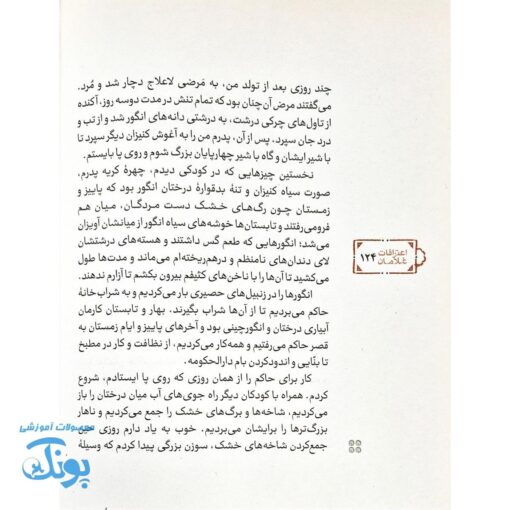 چند روزی بعد از تولد من، به مَرضی لاعلاج دچار شد و مُرد.
می‌گفتند مرض آن‌چنان بود که تمام تنش در مدت دوسه روز، آکنده
از تاول‌های چرکی درشت، به درشتی دانه‌های انگور شد و از تب و
درد جان سپرد. پس از آن، پدرم من را به آغوش کنیزان دیگر سپرد تا
با شیر ایشان و گاه با شیر چهارپایان بزرگ شوم و روی پا بایستم.
نخستین چیزهایی که در کودکی دیدم، چهرهٔ کریه پدرم،
صورت سیاه کنیزان و تنهٔ بدقوارهٔ درختان انگور بود که پاییز و
زمستان چون رگ‌های خشک دست مردگان، میان هم
فرومی‌رفتند و تابستان‌ها خوشه‌های سیاه انگور از میانشان آویزان
می‌شد؛ انگورهایی که طعم گس داشتند و هسته‌های درشتشان
لای دندان‌های نامنظم و درهم‌ریخته‌ام می‌ماند و مدت‌ها طول
می‌کشید تا آن‌ها را با ناخن‌های کثیفم بیرون بکشم تا آزارم ندهند.
انگورها را در زنبیل‌های حصیری بار می‌کردیم و به شراب‌خانهٔ
حاکم می‌بردیم تا از آن‌ها شراب بگیرند. بهار و تابستان کارمان
آبیاری درختان و انگورچینی بود و آخرهای پاییز و ایام زمستان به
قصر حاکم می‌رفتیم و همه‌کار می‌کردیم، از نظافت و کار در مطبخ
تا بنّایی و اندودکردن بام دارالحکومه.
کار برای حاکم را از همان روزی که روی پا ایستادم، شروع
کردم. همراه با کودکان دیگر راه جوی‌های آب میان درختان را باز
می‌کردیم، شاخه‌ها و برگ‌های خشک را جمع می‌کردیم و ناهار
بزرگ‌ترها را برایشان می‌بردیم. خوب به یاد دارم روزی حین
جمع‌کردن شاخه‌های خشک، سوزن بزرگی پیدا کردم که وسیلهٔ
اعترافات
غلامان
۱۲۴
محصولات آموزشی
پونک